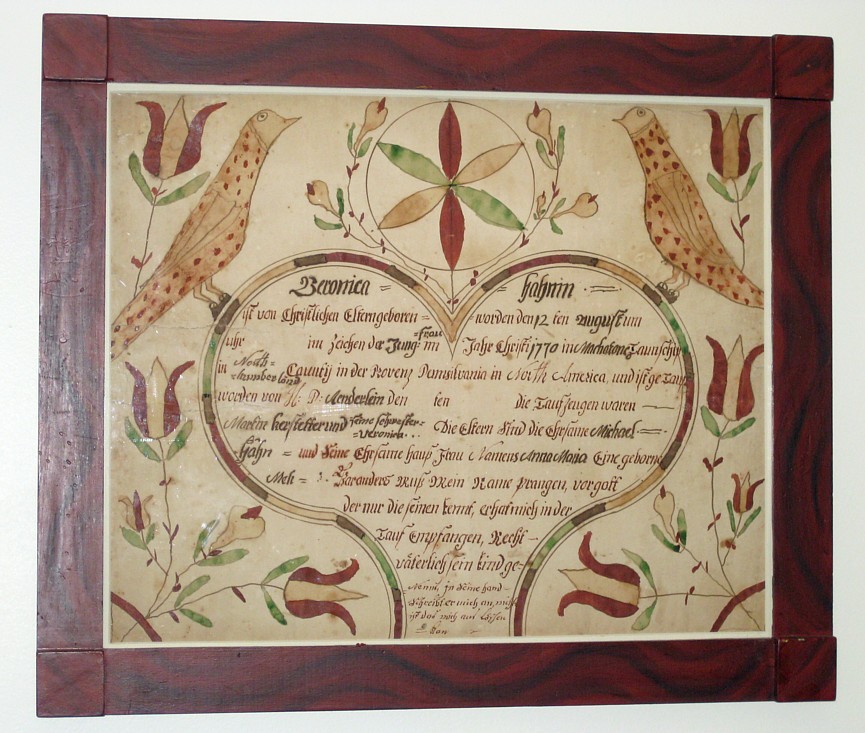 Veronica = Hähnin
ist von Christlichen Eltern geboren = worden den 12 ten august um
uhr im Zeichen der Jung-frau im Jahr Christi 1770 in Machatone Taunschip
in North=umberland Caunty in der Provenz Pensilvania in North America, und ist getauft
worden von H: D: Enderlein den ten die Taufzeugen waren
Martin Kerstetter und seine schwester Veronica. Die Eltern Sind die Ehrsame Michael =
Hähn = und Seine Ehrsame hauß Frau Namens Anna Maria Eine geborne
Paranders Muß Mein Name prangen, vor gott
der nur die seinen kennt, er hat mich in der
Tauf Empfangen, Recht
väterlich sein kind ge-
Nennt, in Seine hand
Schreibt er mich an,